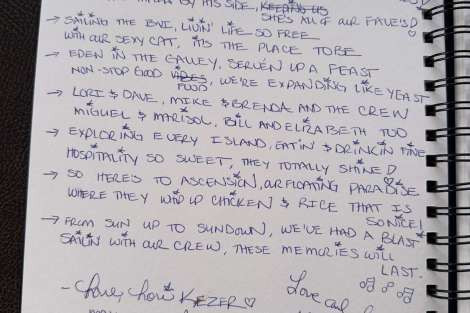 BY HIS SIDE, KEEPING US
SHE'S ALL OF OUR FAVE'S
→ SAILING THE BVI, LIVIN' LIFE SO FREE
WITH OUR SEXY CAT, ITS THE PLACE TO BE
→ EDEN IN THE GALLEY, SERVEN UP A FEAST
NON-STOP GOOD VIBES FOOD, WE'RE EXPANDING LIKE YEAST
→ LORI & DAVE, MIKE & BRENDA AND THE CREW
MIGUEL & MARISOL, BILL AND ELIZABETH TOO
→ EXPLORING EVERY ISLAND, EATIN' & DRINKIN FINE
HOSPITALITY SO SWEET, THEY TOTALLY SHINED
→ SO HERE'S TO ASCENSION, OUR FLOATING PARADISE
WHERE THEY WIP UP CHICKEN & RICE THAT IS
SO NICE!
→ FROM SUN UP TO SUNDOWN, WE'VE HAD A BLAST
SAILIN WITH OUR CREW, THESE MEMORIES WILL
LAST.
- Love, Lori KIEZER
Love and